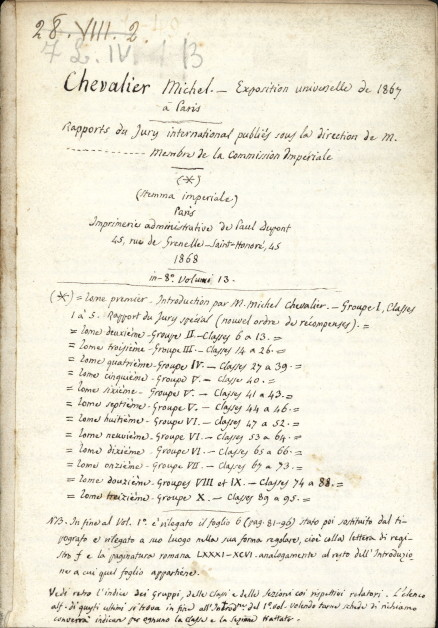 28. VIII. 2.
7 L. IV. 1 13
Chevalier Michel. — Exposition universelle de 1867
à Paris
Rapports du Jury international publiés sous la direction de M.
Membre de la Commission Impériale
(*)
(stemma imperiale)
Paris
Imprimerie administrative de Paul Dupont
45, rue de Grenelle-Saint-Honoré, 45
1868
in-8º. Volumi 13.
(*) = Tome premier. Introduction par M. Michel Chevalier. — Groupe I, Classes
1 à 5. Rapport du Jury spécial (nouvel ordre de récompenses). =
= Tome deuxième - Groupe II - Classes 6 à 13. =
= Tome troisième - Groupe III. — Classes 14 à 26. =
= Tome quatrième - Groupe IV. — Classes 27 à 39. =
= Tome cinquième - Groupe V. — Classe 40. =
= Tome sixième - Groupe V. — Classes 41 à 43. =
= Tome septième - Groupe V. — Classes 44 à 46. =
= Tome huitième - Groupe VI. — Classes 47 à 52. =
= Tome neuvième - Groupe VI. — Classes 53 à 64. =
= Tome dixième - Groupe VI. — Classes 65 à 66. =
= Tome onzième - Groupe VII. — Classes 67 à 73. =
= Tome douzième - Groupes VIII et IX. — Classes 74 à 88. =
= Tome treizième - Groupe X. — Classes 89 à 95. =
NB. In fine al Vol. 1º. è rilegato il foglio 6 (pag. 81-96) stato poi sostituito dal ti-
pografo e rilegato a suo luogo nella sua forma regolare, cioè colla lettera di regi-
stro f e la paginatura romana LXXXI-XCVI. analogamente al resto dell'Introduzio
ne a cui quel foglio appartiene.
Vedi retro l'indice dei gruppi, delle classi e delle sezioni coi rispettivi relatori. L'elenco
alf. di questi ultimi si trova in fine all'Introd.ne del 1º. vol. volendo farne schede di richiamo
converrà indicare per ognuno la classe e la sezione trattata.